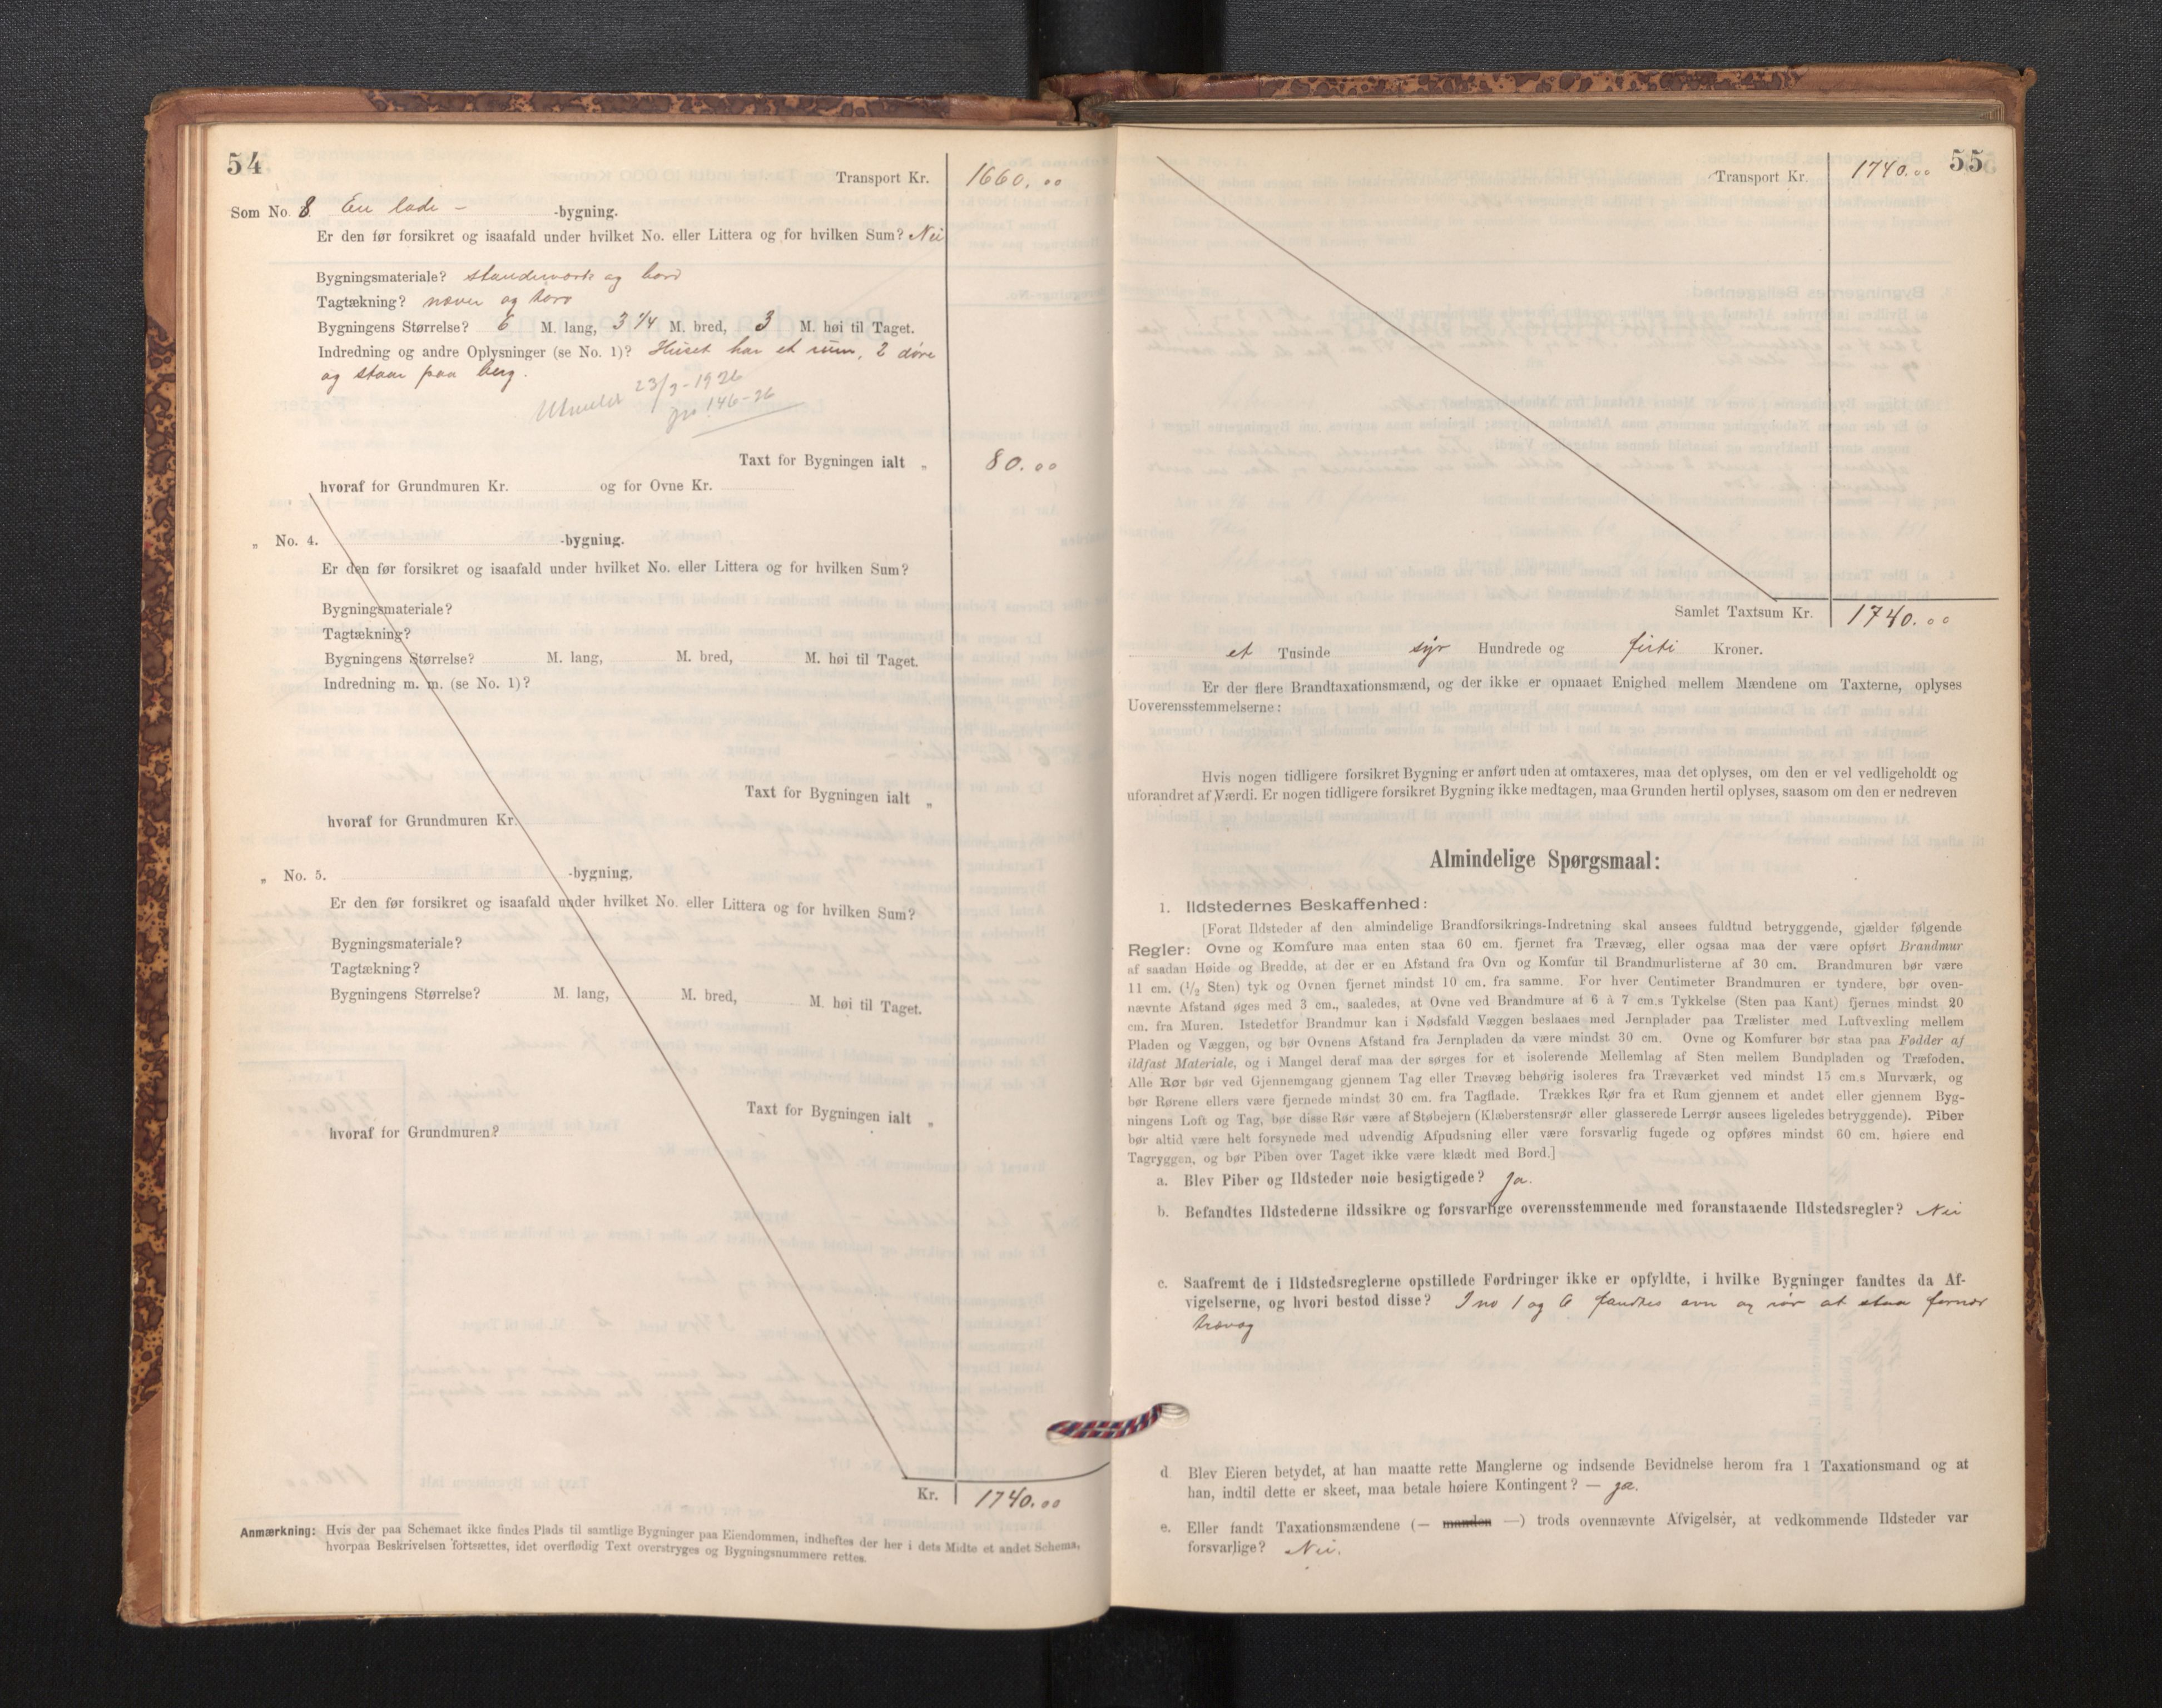 54
Transport Kr. 1660.00
Som No. 8. En lade - -bygning.
Er den før forsikret og isaafald under hvilket No. eller Littera og for hvilken Sum? Nei
Bygningsmateriale? standerværk og bord
Tagtækning? næver og torv
Bygningens Størrelse? 6 M. lang, 3 1/4 M. bred, 3 M. høi til Taget.
Indredning og andre Oplysninger (se No. 1)? Huset har et rum, 2 døre
og staar paa berg.
Utmeldt 23/3-1926
146-26
Taxt for Bygningen ialt „ 80.00
hvoraf for Grundmuren Kr. og for Ovne Kr.
„ No. 4. -bygning.
Er den før forsikret og isaafald under hvilket No. eller Littera og for hvilken Sum?
Bygningsmateriale?
Tagtækning?
Bygningens Størrelse? M. lang, M. bred, M. høi til Taget.
Indredning m. m. (se No. 1)?
Taxt for Bygningen ialt „
hvoraf for Grundmuren Kr.
„ No. 5. -bygning,
Er den før forsikret og isaafald under hvilket No. eller Littera og for hvilken Sum?
Bygningsmateriale?
Tagtækning?
Bygningens Størrelse? M. lang, M. bred, M. høi til Taget.
Taxt for Bygningen ialt „
hvoraf for Grundmuren?
Kr. 1740.00
Anmærkning: Hvis der paa Schemaet ikke findes Plads til samtlige Bygninger paa Eiendommen, indheftes der her i dets Midte et andet Schema,
hvorpaa Beskrivelsen fortsættes, idet overflødig Text overstryges og Bygningsnummere rettes.
55
Transport Kr. 1740.00
Samlet Taxtsum Kr. 1740.00
et Tusinde syv Hundrede og firti Kroner.
Er der flere Brandtaxationsmænd, og der ikke er opnaaet Enighed mellem Mændene om Taxterne, oplyses
Uoverensstemmelserne:
Hvis nogen tidligere forsikret Bygning er anført uden at omtaxeres, maa det oplyses, om den er vel vedligeholdt og
uforandret af Værdi. Er nogen tidligere forsikret Bygning ikke medtagen, maa Grunden hertil oplyses, saasom om den er nedreven
Almindelige Spørgsmaal:
1. Ildstedernes Beskaffenhed:
[Forat Ildsteder af den almindelige Brandforsikrings-Indretning skal ansees fuldtud betryggende, gjælder følgende
Regler: Ovne og Komfure maa enten staa 60 cm. fjernet fra Trævæg, eller ogsaa maa der være opført Brandmur
af saadan Høide og Bredde, at der er en Afstand fra Ovn og Komfur til Brandmurlisterne af 30 cm. Brandmuren bør være
11 cm. (1/2 Sten) tyk og Ovnen fjernet mindst 10 cm. fra samme. For hver Centimeter Brandmuren er tyndere, bør oven-
nævnte Afstand øges med 3 cm., saaledes, at Ovne ved Brandmure af 6 à 7 cm.s Tykkelse (Sten paa Kant) fjernes mindst 20
cm. fra Muren. Istedetfor Brandmur kan i Nødsfald Væggen beslaaes med Jernplader paa Trælister med Luftvexling mellem
Pladen og Væggen, og bør Ovnens Afstand fra Jernpladen da være mindst 30 cm. Ovne og Komfurer bør staa paa Fødder af
ildfast Materiale, og i Mangel deraf maa der sørges for et isolerende Mellemlag af Sten mellem Bundpladen og Træfoden.
Alle Rør bør ved Gjennemgang gjennem Tag eller Trævæg behørig isoleres fra Træværket ved mindst 15 cm.s Murværk, og
bør Rørene ellers være fjernede mindst 30 cm. fra Tagflade. Trækkes Rør fra et Rum gjennem et andet eller gjennem Byg-
ningens Loft og Tag, bør disse Rør være af Støbejern (Klæberstensrør eller glasserede Lerrør ansees ligeledes betryggende). Piber
bør altid være helt forsynede med udvendig Afpudsning eller være forsvarlig fugede og opføres mindst 60 cm. høiere end
Tagryggen, og bør Piben over Taget ikke være klædt med Bord.]
a. Blev Piber og Ildsteder nøie besigtigede? Ja.
b. Befandtes Ildstederne ildssikre og forsvarlige overensstemmende med foranstaaende Ildstedsregler? Nei
c. Saafremt de i Ildstedsreglerne opstillede Fordringer ikke er opfyldte, i hvilke Bygninger fandtes da Af-
vigelserne, og hvori bestod disse? I no 1 og 6 fandtes ovn og rør at staa fornær
trævæg
d Blev Eieren betydet, at han maatte rette Manglerne og indsende Bevidnelse herom fra 1 Taxationsmand og at
han, indtil dette er skeet, maa betale høiere Kontingent? — ja.
e. Eller fandt Taxationsmændene (— manden —) trods ovennævnte Afvigelser, at vedkommende Ildsteder var
forsvarlige? Nei.